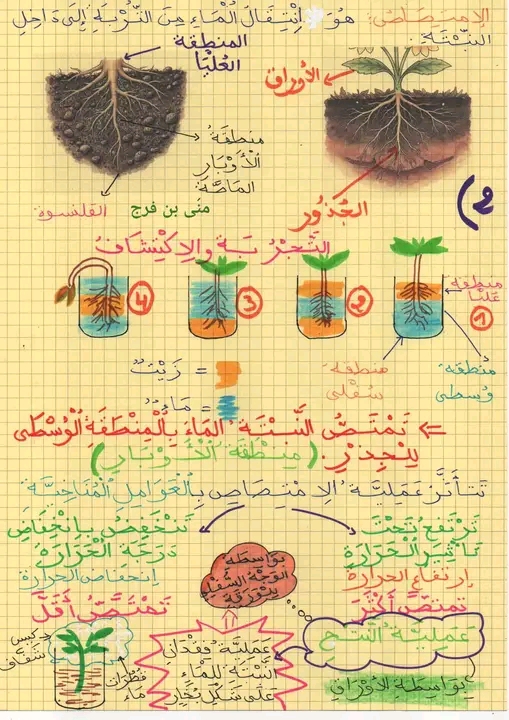 الإمتصاص: هو انتقال الماء من التربة إلى داخل
النبتة.
المنطقة
العليا
الأوراق
منطقة
الأوبار
الماصة
القلنسوة
منى بن فرج
الجذور
2)
التجربة والاكتشاف
منطقة
عليا
4
3
2
1
منطقة
وسطى
منطقة
سفلى
= زيت
= ماء
<= تمتص النبتة الماء بالمنطقة الوسطى
للجذر. (منطقة الأوبار)
تتأثر عملية الامتصاص بالعوامل المناخية
ترتفع تحت
تأثير الحرارة
إرتفاع الحرارة
تمتص أكثر
تنخفض بانخفاض
درجة الحرارة
إنخفاض الحرارة
تمتص أقل
بواسطة
الوجه السفلي
للورقة
عملية النتح
بواسطة الأوراق
عملية فقدان
النبتة للماء
على شكل بخار
كيس
شفاف
قطرات
ماء